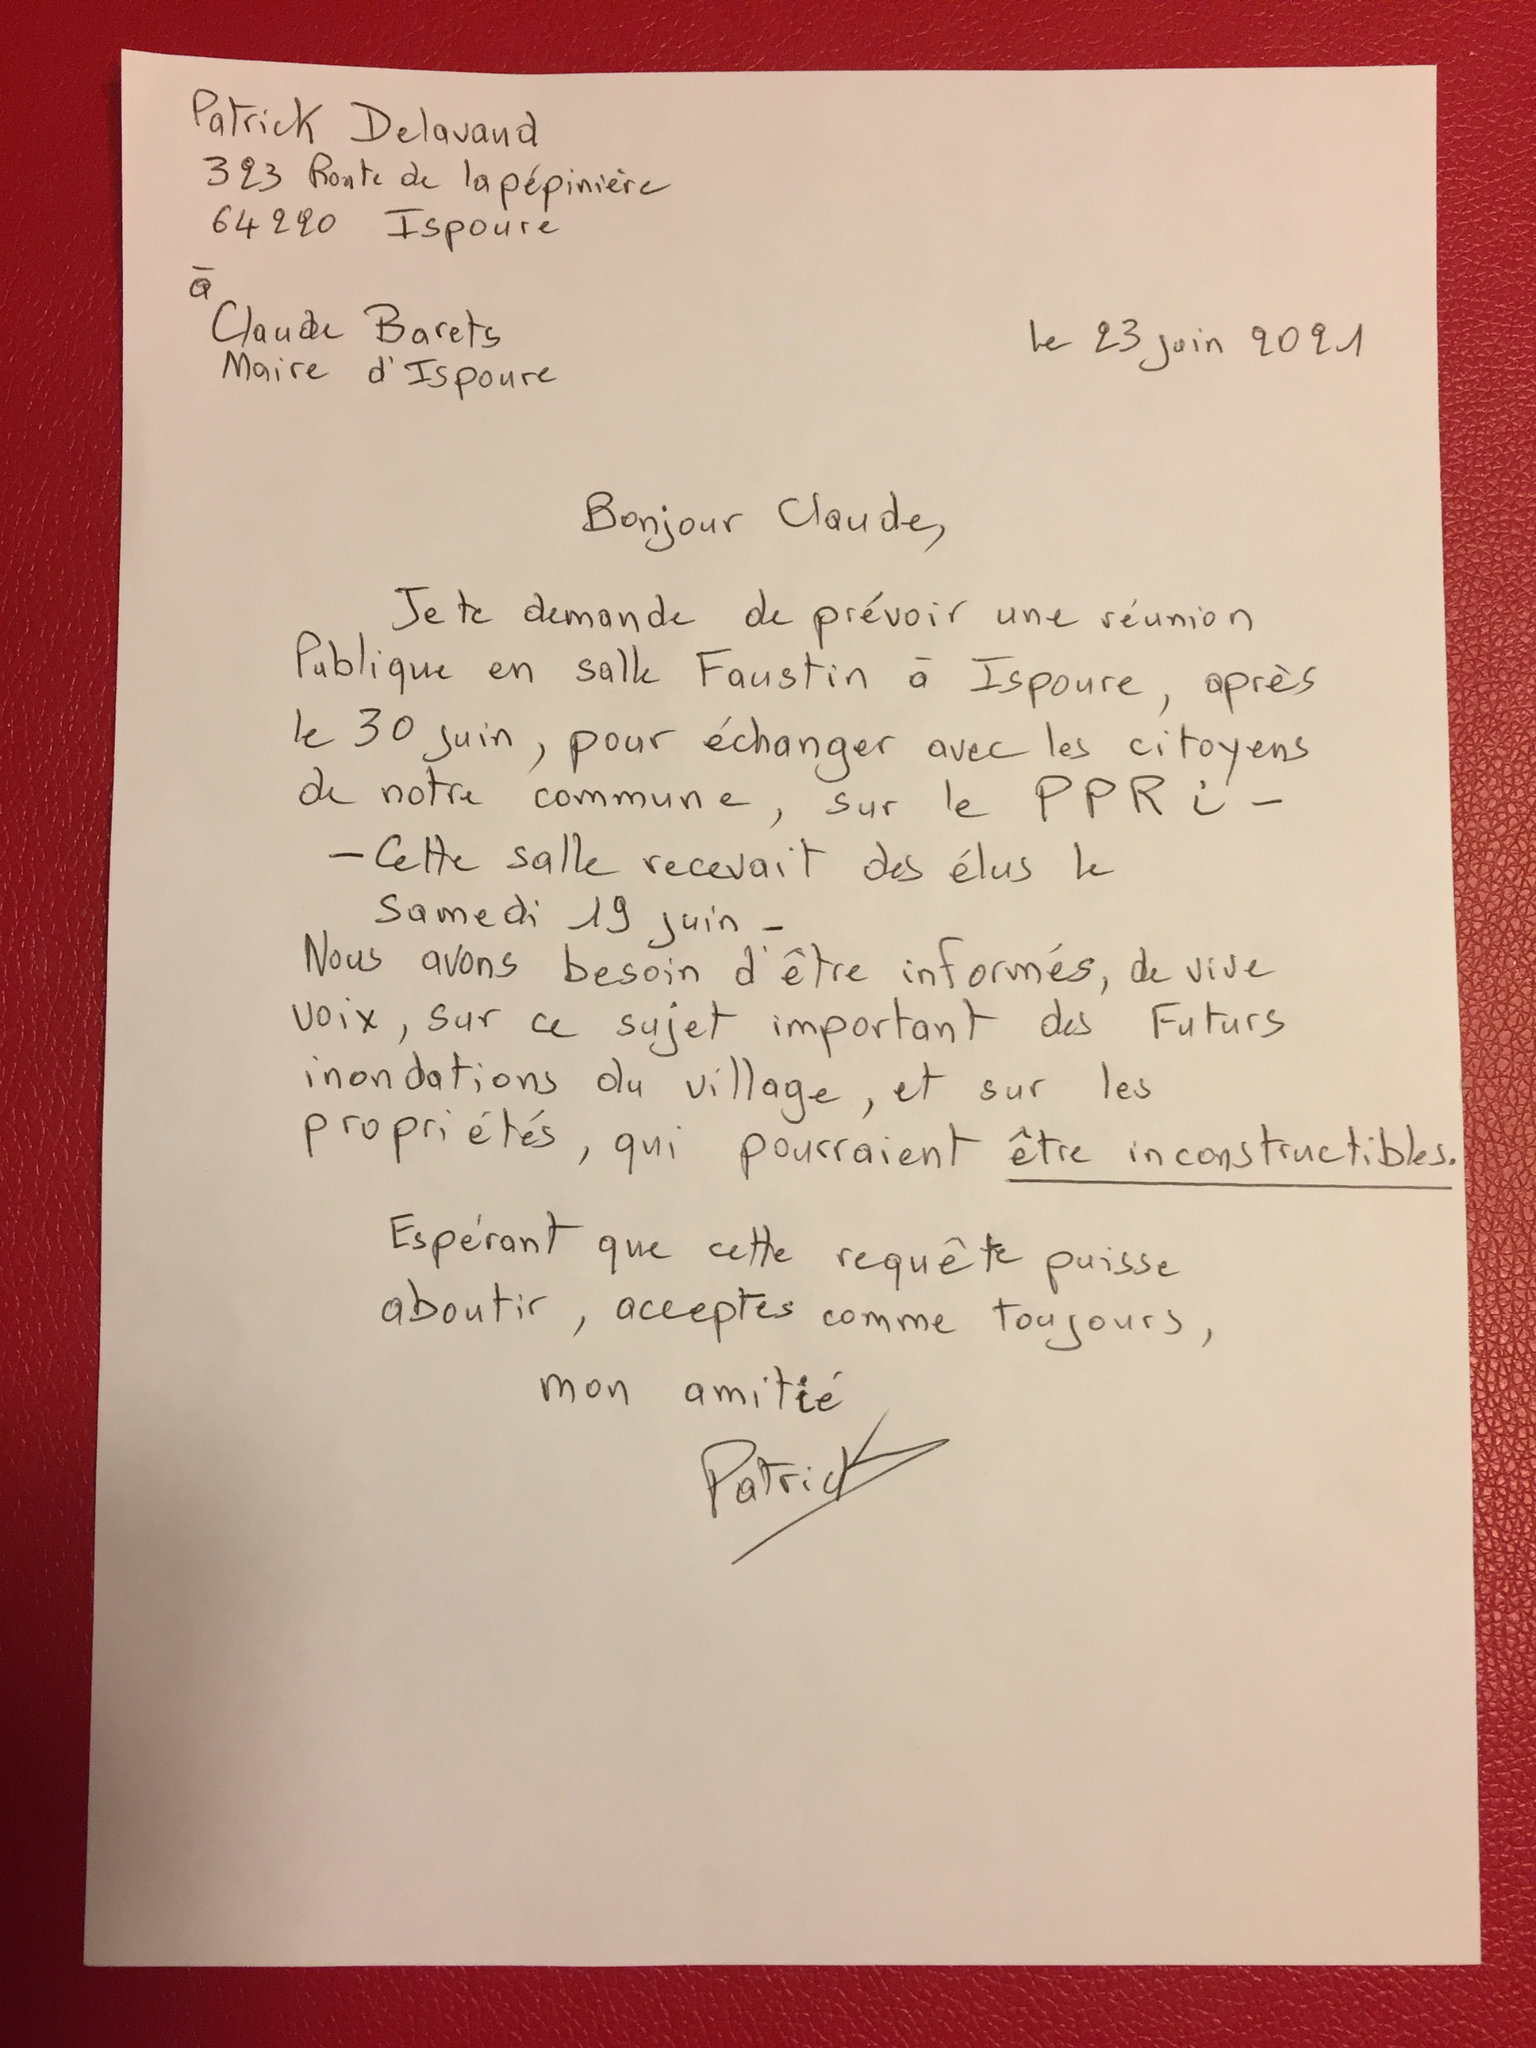 Patrick Delavaud
323 Route de la pépinière
64220 Ispoure
à
Claude Barets
Maire d'Ispoure
le 23 juin 2021
Bonjour Claude,
Je te demande de prévoir une réunion
Publique en salle Faustin à Ispoure, après
le 30 juin, pour échanger avec les citoyens
de notre commune, sur le PPRi -
- Cette salle recevait des élus le
Samedi 19 juin -
Nous avons besoin d'être informés, de vive
voix, sur ce sujet important des Futurs
inondations du village, et sur les
propriétés, qui pourraient être inconstructibles.
Espérant que cette requête puisse
aboutir, acceptes comme toujours,
mon amitié
Patrick